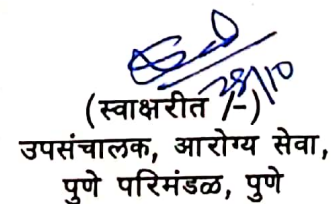 28/10
(स्वाक्षरीत /-)
उपसंचालक, आरोग्य सेवा,
पुणे परिमंडळ, पुणे